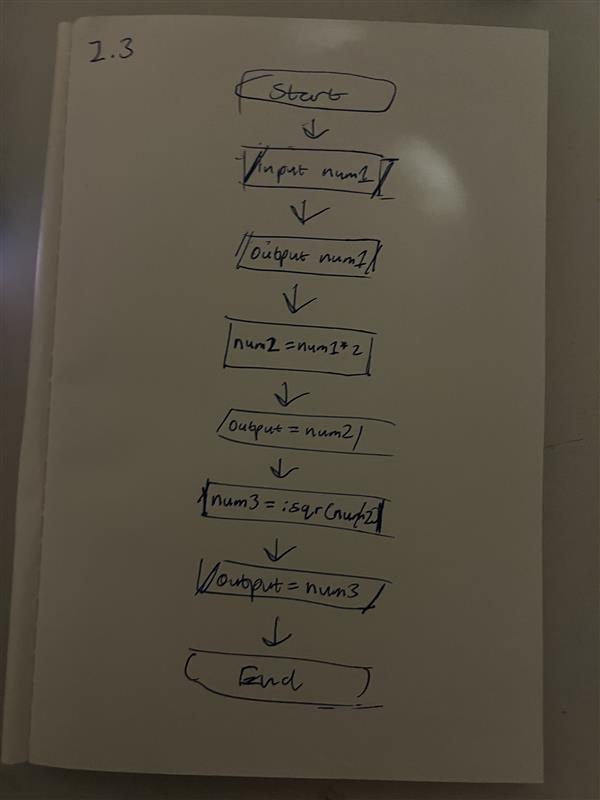 2.3
Start
input num1
output num1
num2=num1*2
output=num2
num3=isqr(num2)
output=num3
End